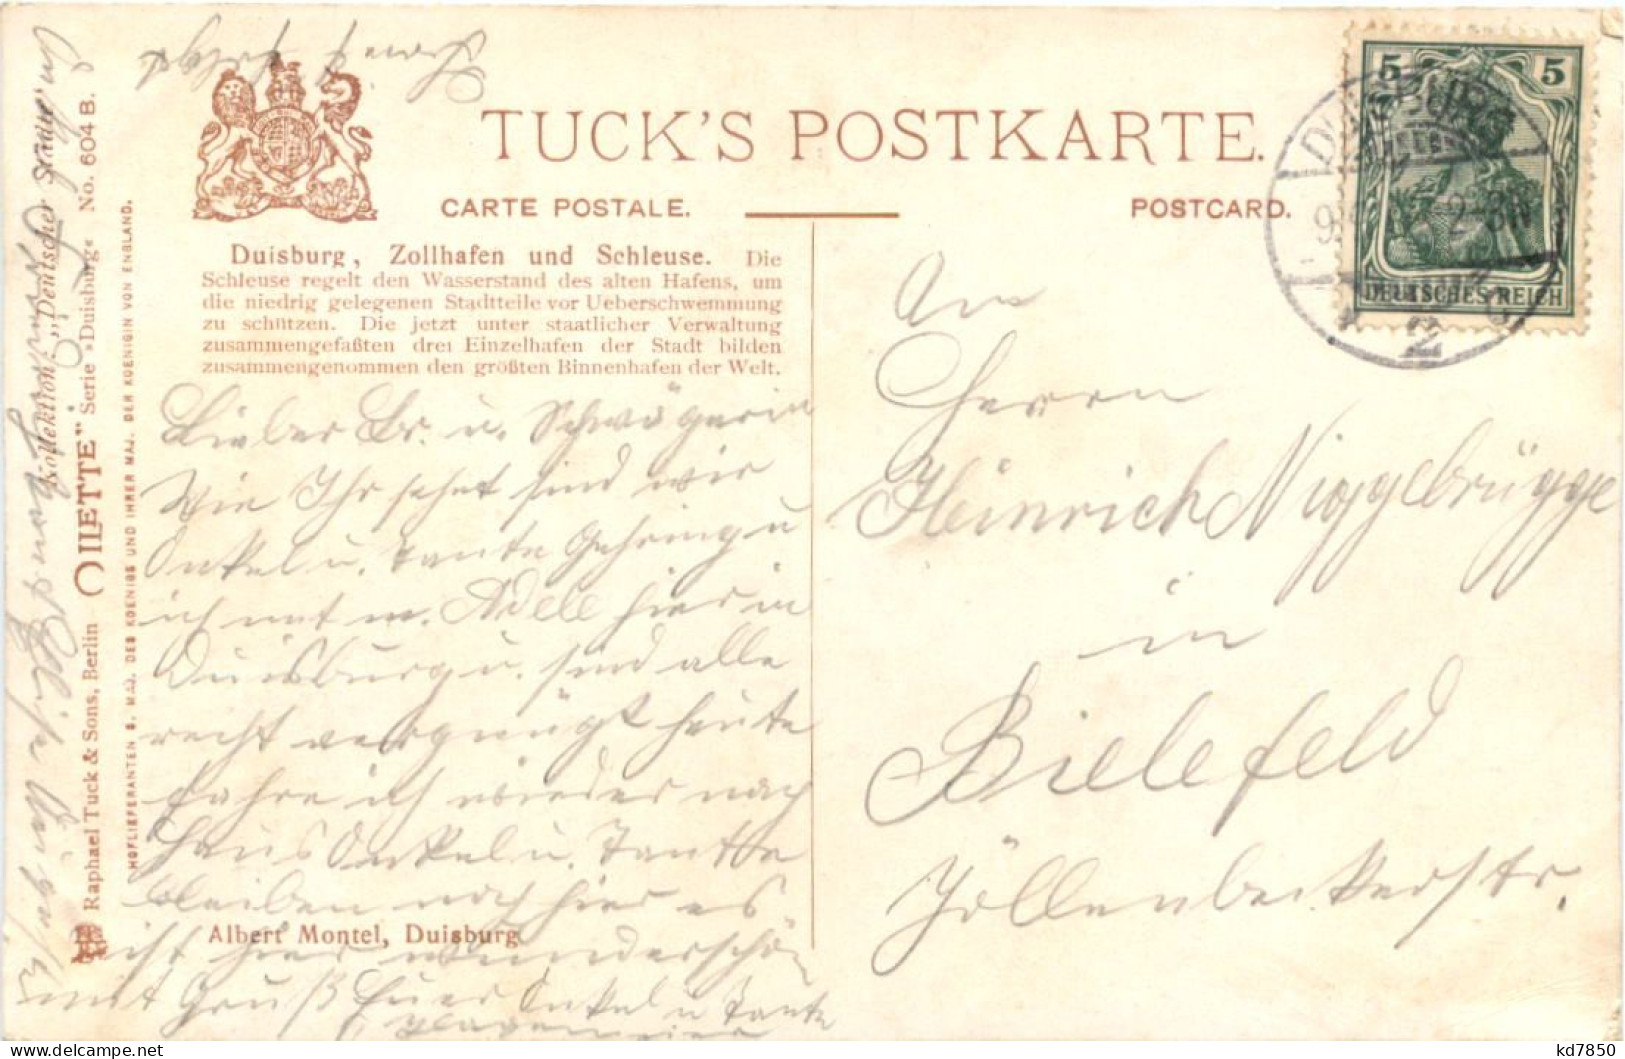 TUCK'S POSTKARTE.
CARTE POSTALE.
POSTCARD.
5 5
DEUTSCHES REICH
DUISBURG
2
Duisburg, Zollhafen und Schleuse. Die
Schleuse regelt den Wasserstand des alten Hafens, um
die niedrig gelegenen Stadtteile vor Ueberschwemmung
zu schützen. Die jetzt unter staatlicher Verwaltung
zusammengefaßten drei Einzelhafen der Stadt bilden
zusammengenommen den größten Binnenhafen der Welt.
Lieber Br. u. Schwägerin
Wie Ihr sehet sind wir
Onkel u. Tante Gehring u
ich mit m. Adele hier in
Duisburg u. sind alle
recht vergnügt heute
fahre ich wieder nach
Haus Onkel u. Tante
bleiben noch hier es
ist hier wunderschön
mit Gruß Euer Onkel u Tante
Albert Montel, Duisburg
An
Herrn
Heinrich Niggebrügge
in
Bielefeld
Jöllenbeckerstr.
Kollektion: „Deutscher Städte"
Raphael Tuck & Sons, Berlin „OILETTE" Serie »Duisburg« No. 604 B.
HOFLIEFERANTEN S. MAJ. DES KOENIGS UND IHRER MAJ. DER KOENIGIN VON ENGLAND.
kd7850